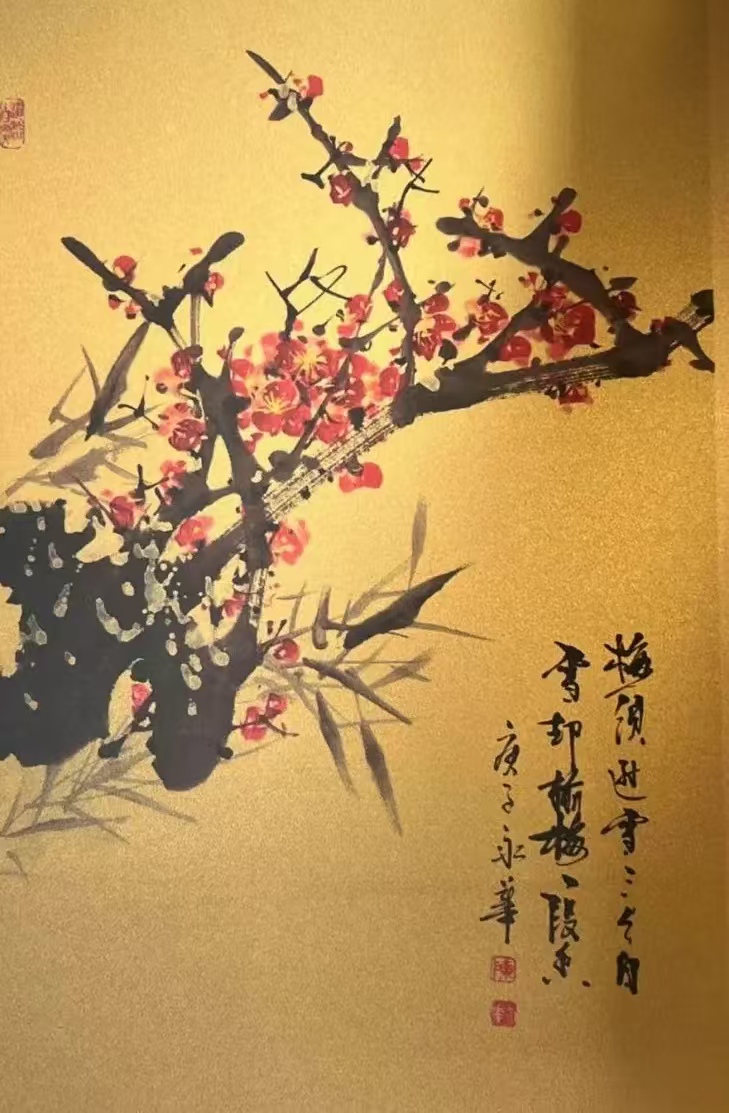 梅須遜雪三分白
雪却輸梅一段香
庚子永華